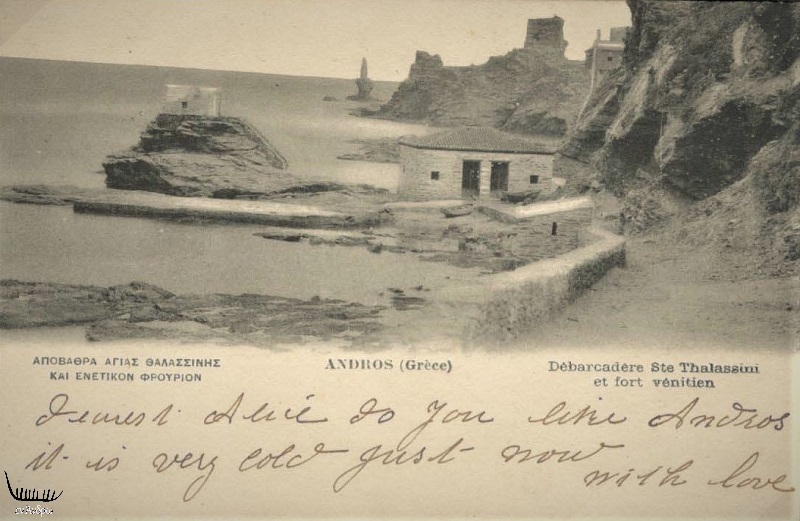 ΑΠΟΒΑΘΡΑ ΑΓΙΑΣ ΘΑΛΑΣΣΙΝΗΣ
ΚΑΙ ΕΝΕΤΙΚΟΝ ΦΡΟΥΡΙΟΝ
ANDROS (Grèce)
Débarcadère Ste Thalassini
et fort vénitien
dearest Alice do You like Andros
it is very cold just now
with love